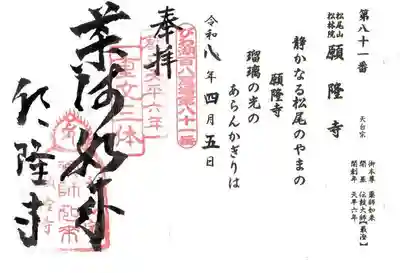 第八十一番
松尾山
松林院
願隆寺
天台宗
御本尊 薬師如来
開基 伝教大師【最澄】
開創年 天平六年
静かなる松尾のやまの
願隆寺
瑠璃の光の
あらんかぎりは
令和八年四月五日
びわ湖百八霊場第八十一番
奉拝
天平六年
重文三体
薬師如来